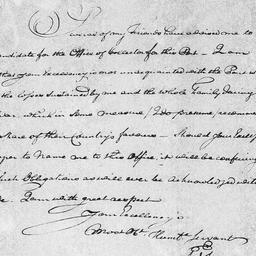 Several of my Friends have advised me to
candidate for the Office of Collector for this Port - I am
that your Excellency is not unacquainted with the Part
the losses sustained by me and the whole Family during
which in some measure, I do presume, recommen
share of their Country's favours - Should your Excell
proper to Name me to this Office, it will be conferring
such Obligations as will ever be acknowledged with
I am with great respect
Your Excellency's
Most Obt. Humble Servant